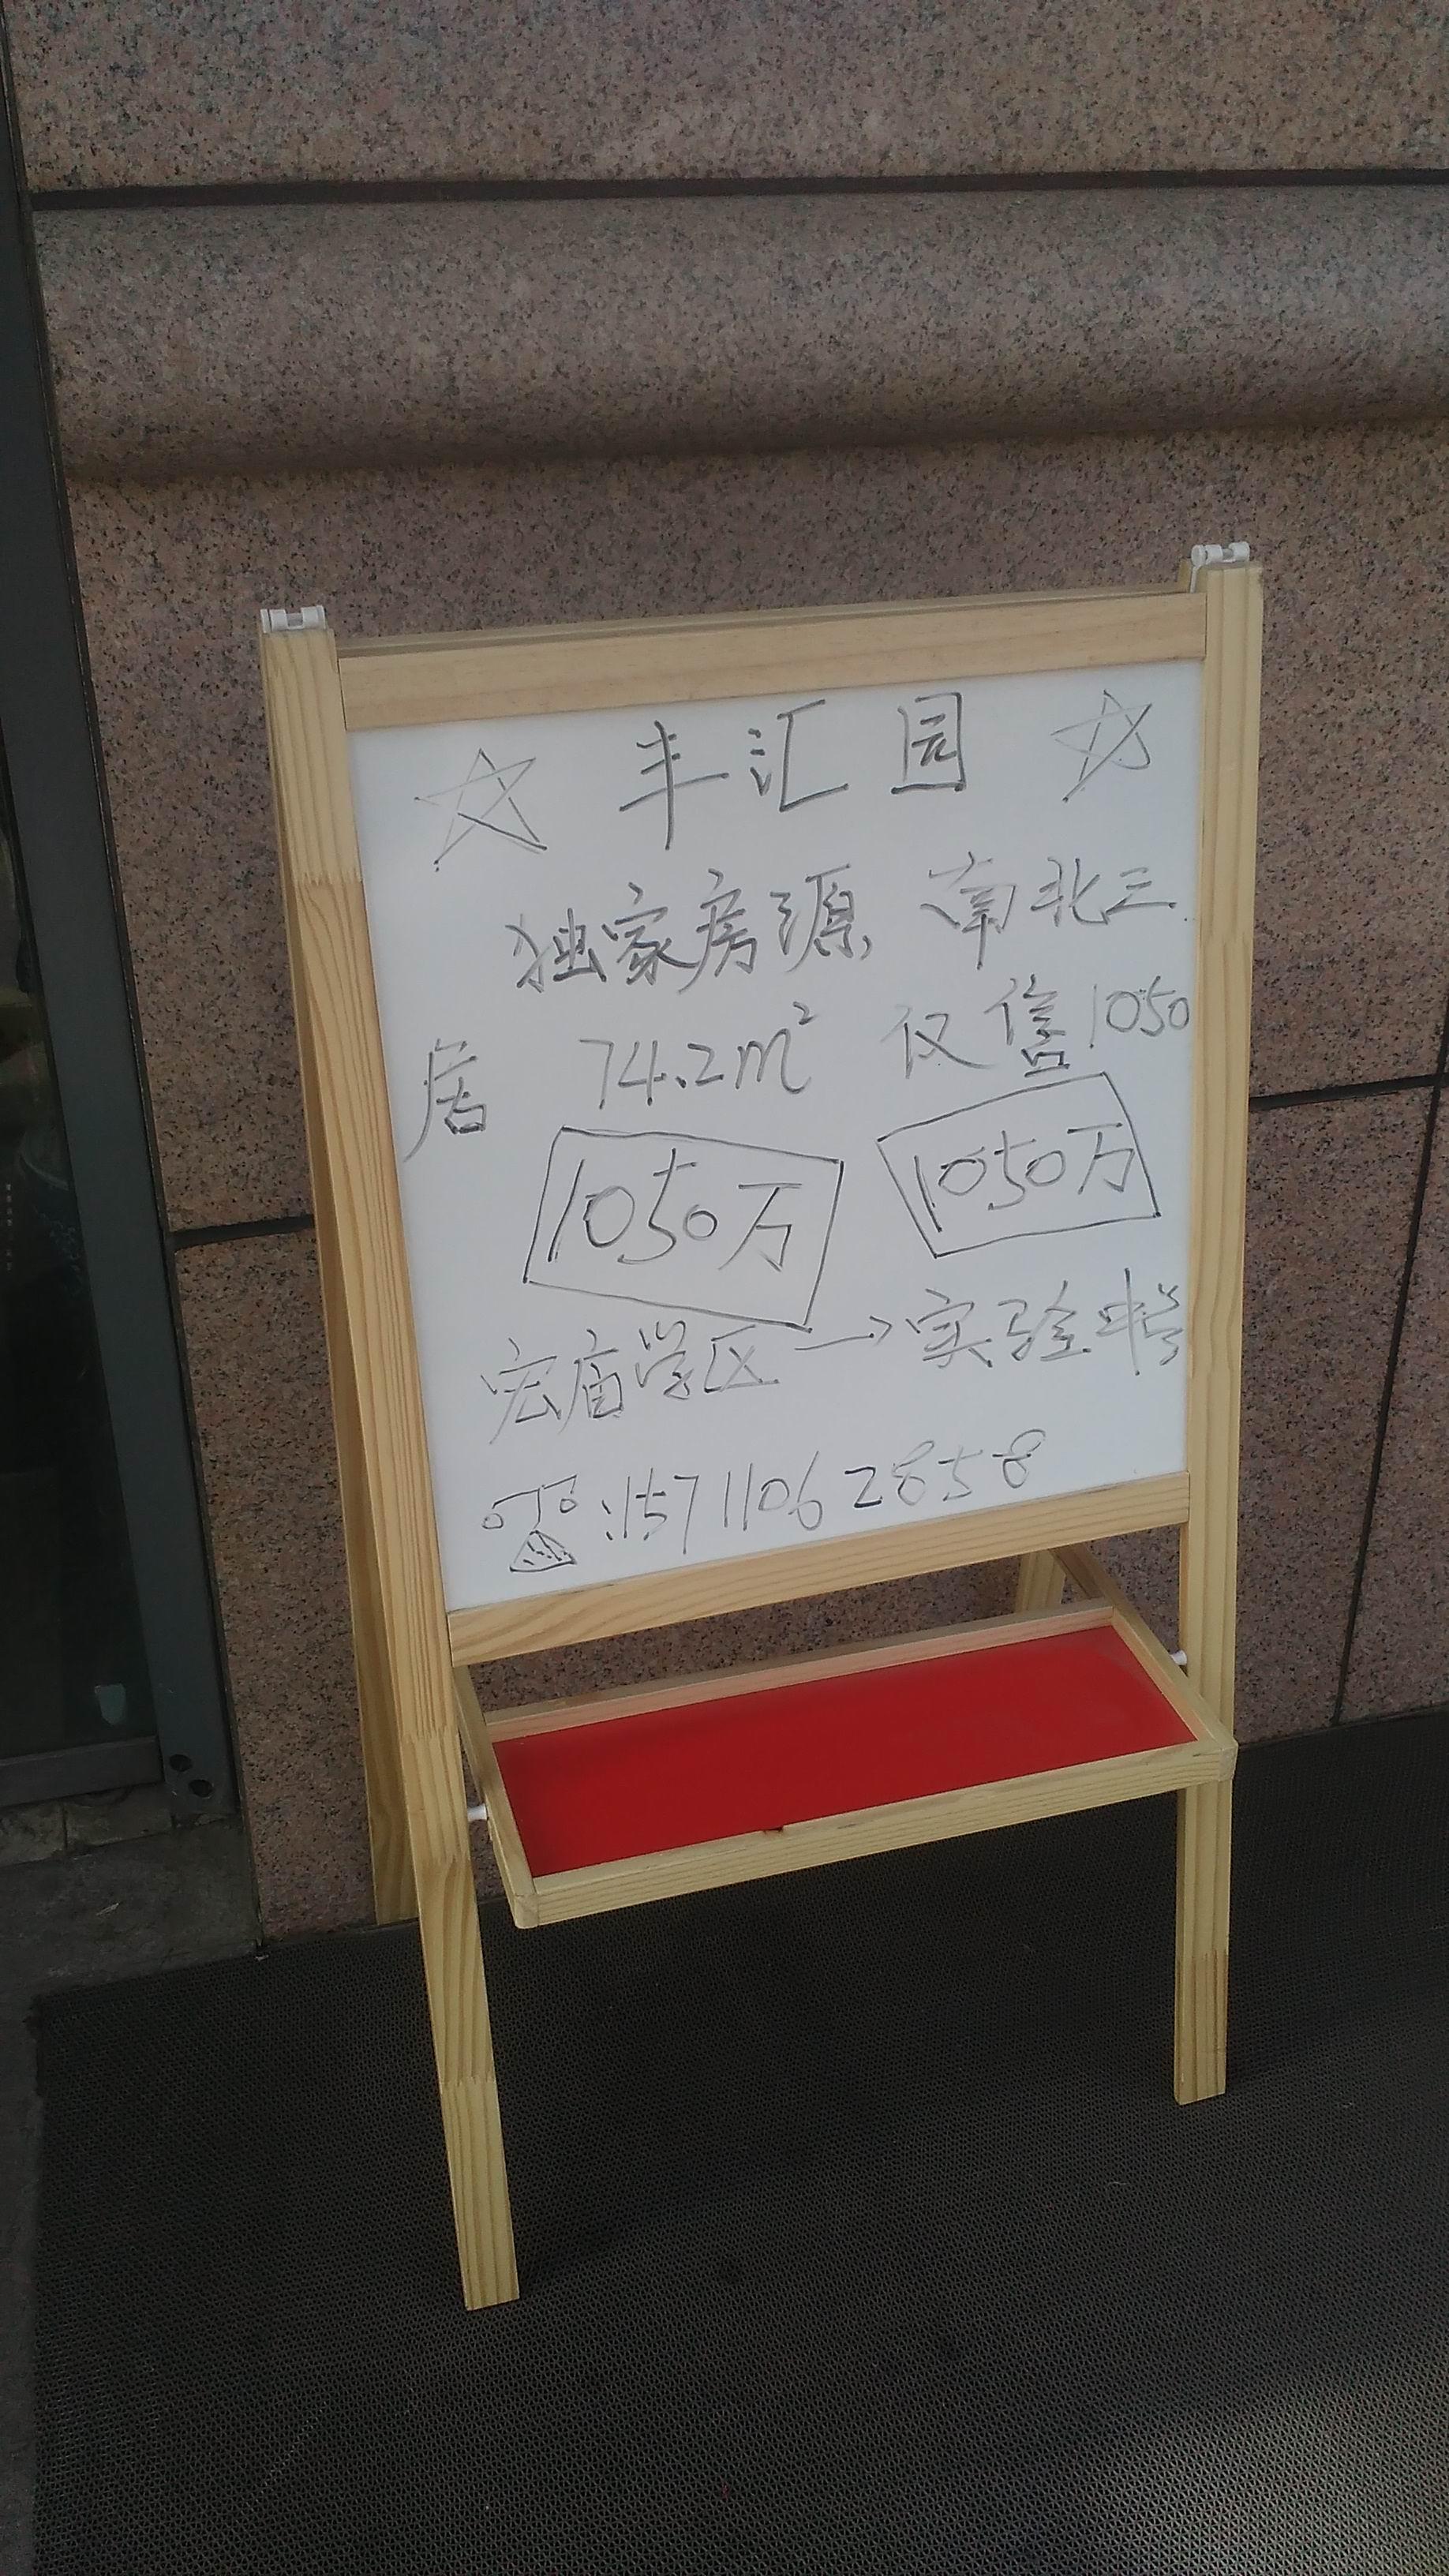 丰汇园
独家房源 南北三
居 74.2m² 仅售1050
1050万 1050万
宏庙学区→实验中学
:15711062858